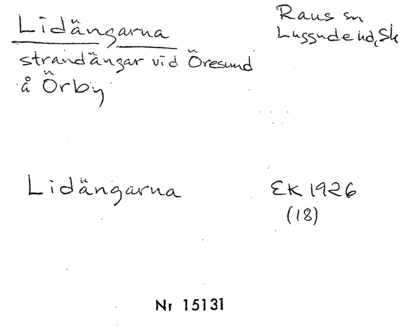 Lidängarna
Raus sn
Luggude hd, Sk
strandängar vid Öresund
å Örby
Lidängarna
EK 1926
(18)
Nr 15131